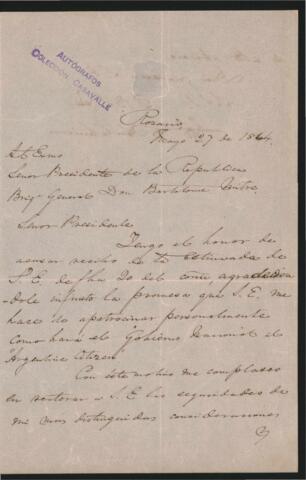 AUTÓGRAFOS
COLECCIÓN CASAVALLE
Rosario,
Mayo 27 de 1864.
Al Exmo
Señor Presidente de la Republica
Brigr General Don Bartolome Mitre,
Señor Presidente
Tengo el honor de
acusar recibo de la estimada de
S. E. de fha 20 del cont agradecien
dole infinito la promesa que S. E. me
hace de apatrocinar personalmente
como hará el Gobierno Nacional el
"Argentine Citizen"
Con este motivo me complazco
en reiterar a S. E las seguridades de
mi mas distinguidas consideraciones